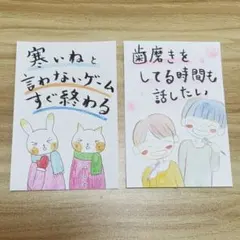 寒いねと
言わないゲーム
すぐ終わる
歯磨きを
してる時間も
話したい